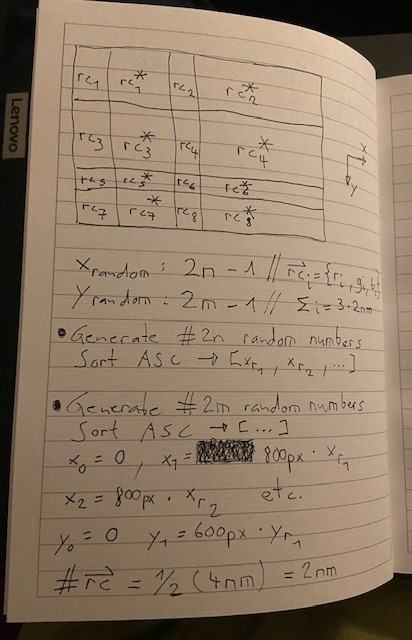 Lenovo
rc₁ rc₁* rc₂ rc₂*
rc₃ rc₃* rc₄ rc₄*
rc₅ rc₅* rc₆ rc₆*
rc₇ rc₇* rc₈ rc₈*
x
y
x random : 2n - 1 // rc⃗ᵢ = {rᵢ, gᵢ, bᵢ}
y random : 2m - 1 // Σi = 3·2nm
• Generate #2n random numbers
Sort ASC → [xr₁, xr₂, ...]
• Generate #2m random numbers
Sort ASC → [...]
x₀ = 0, x₁ = 800px · xr₁
x₂ = 800px · xr₂ etc.
y₀ = 0 y₁ = 600px · yr₁
#rc⃗ = 1/2 (4nm) = 2nm